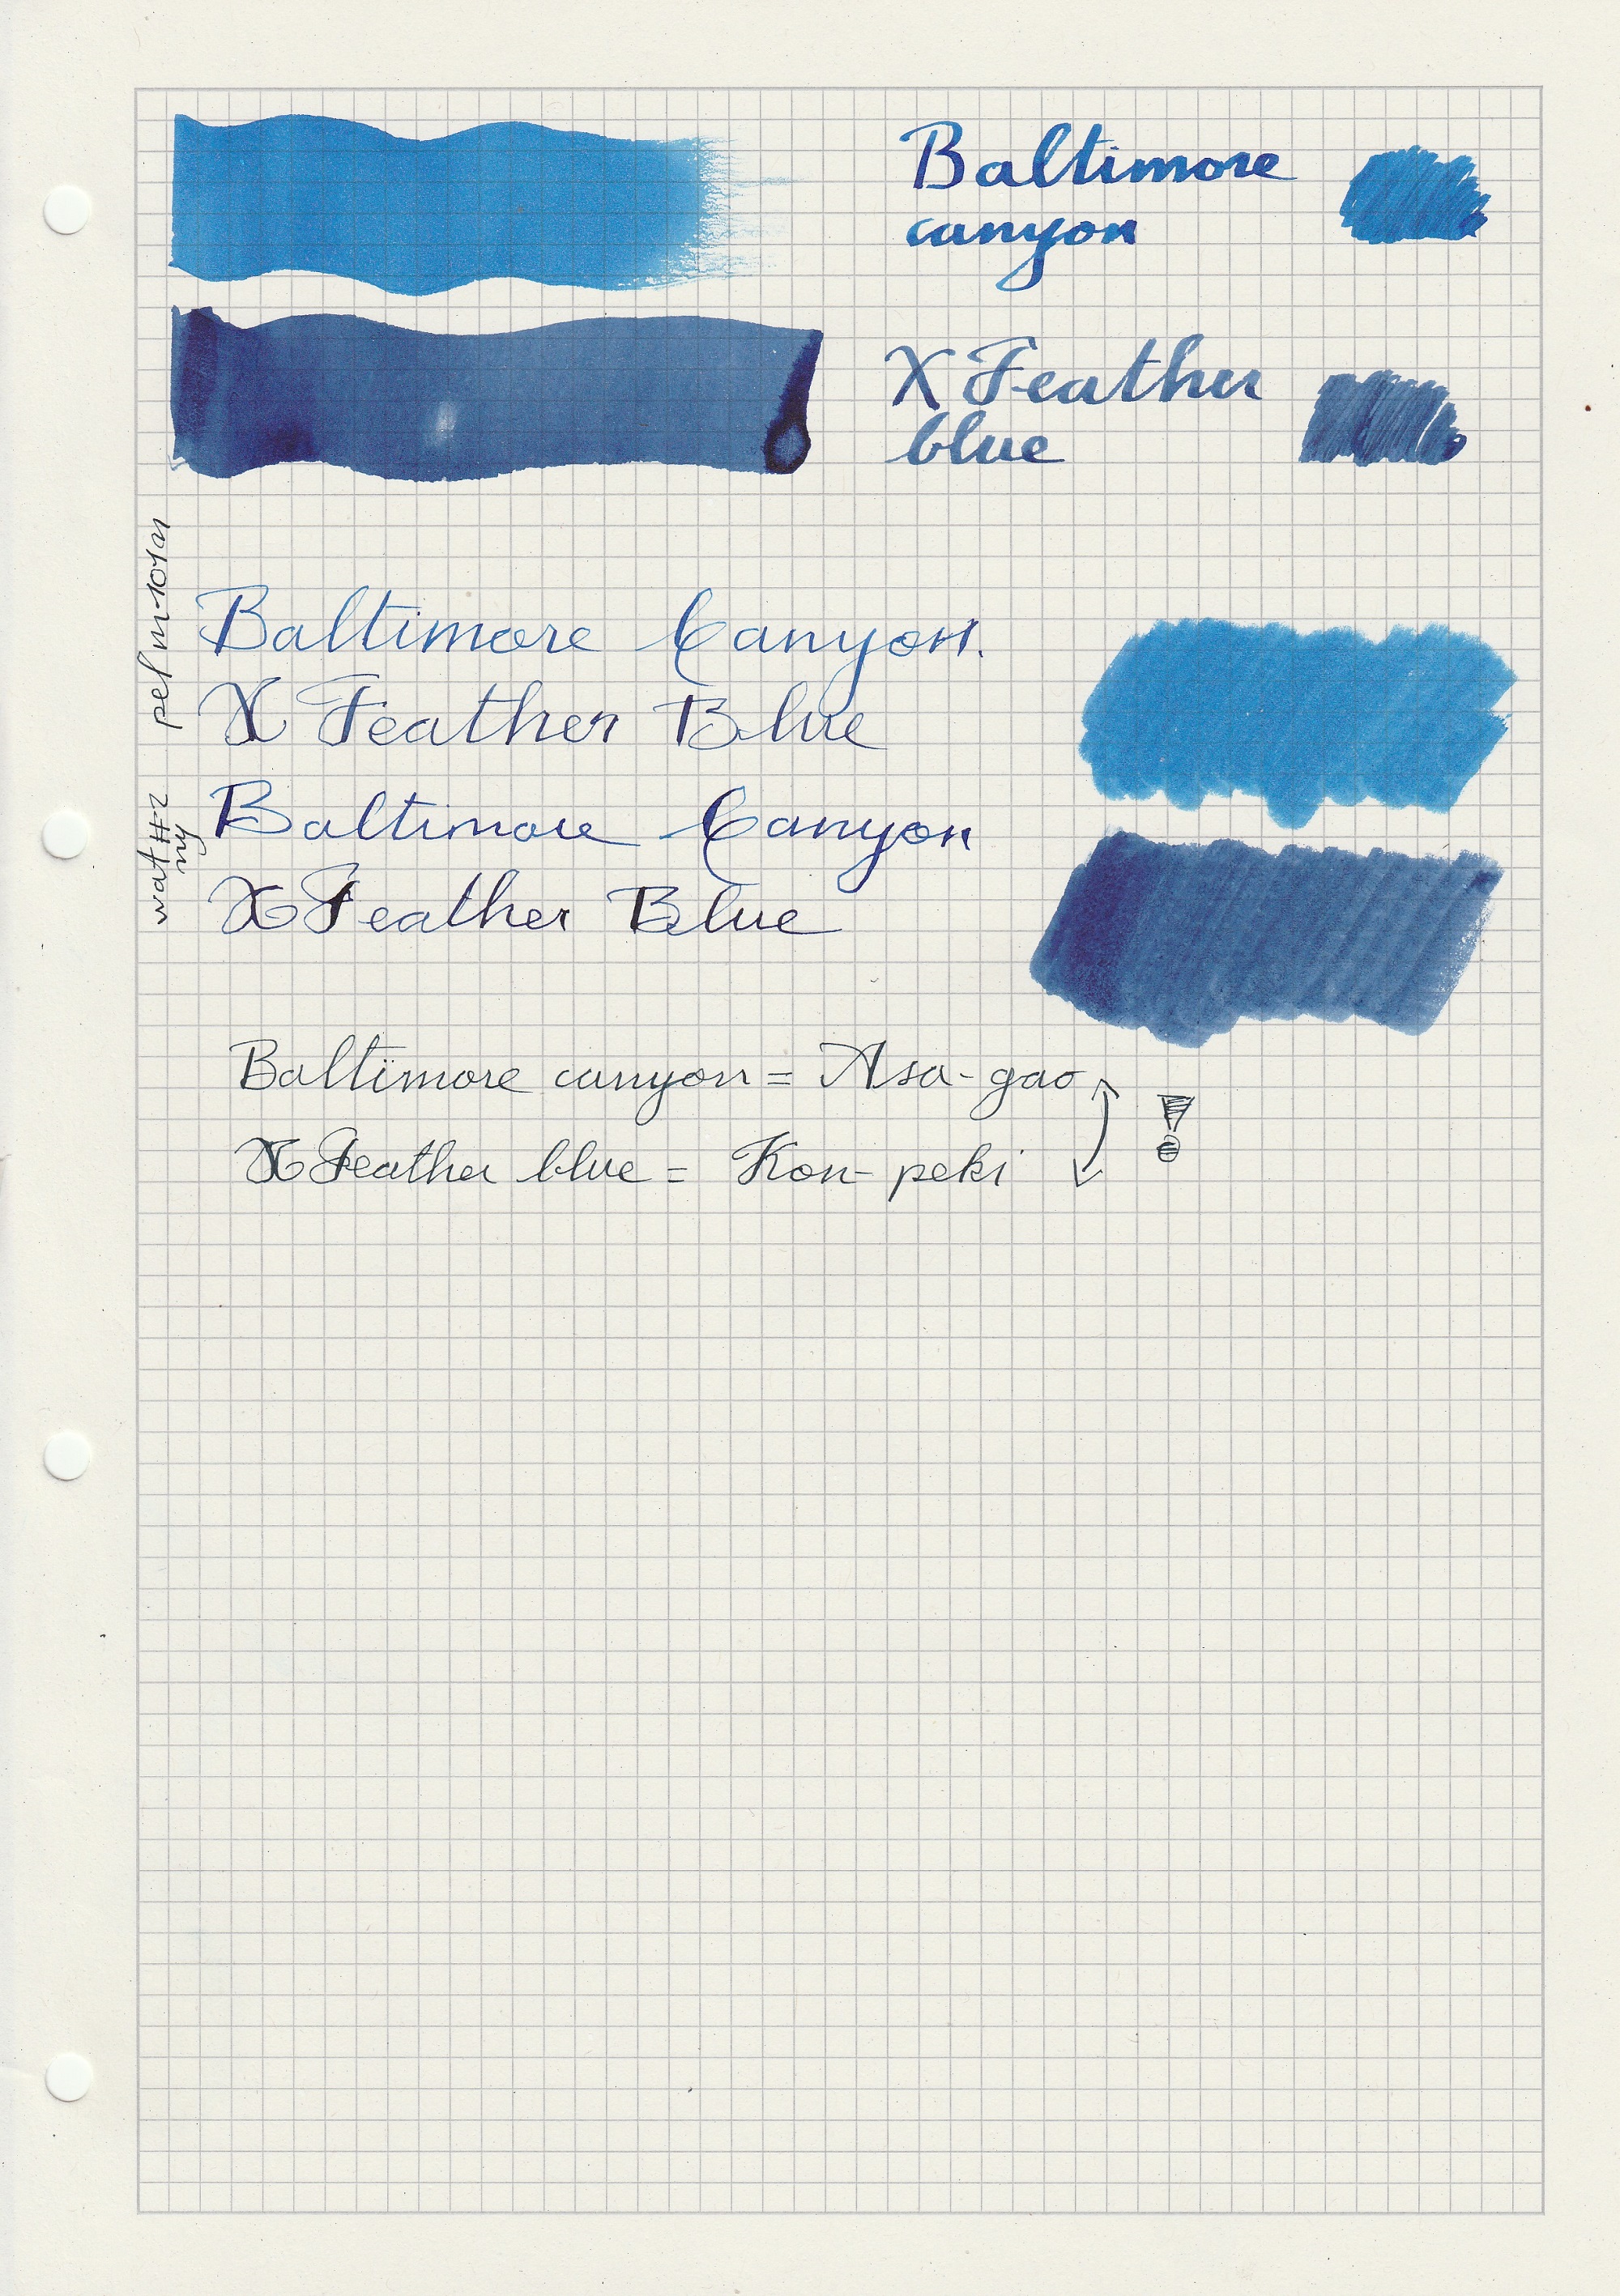 Baltimore
canyon
X Feather
blue
pel m-101n
Baltimore Canyon.
X Feather Blue
wat #2
ny
Baltimore Canyon
X Feather Blue
Baltimore canyon = Asa-gao
X Feather blue = Kon-peki
!